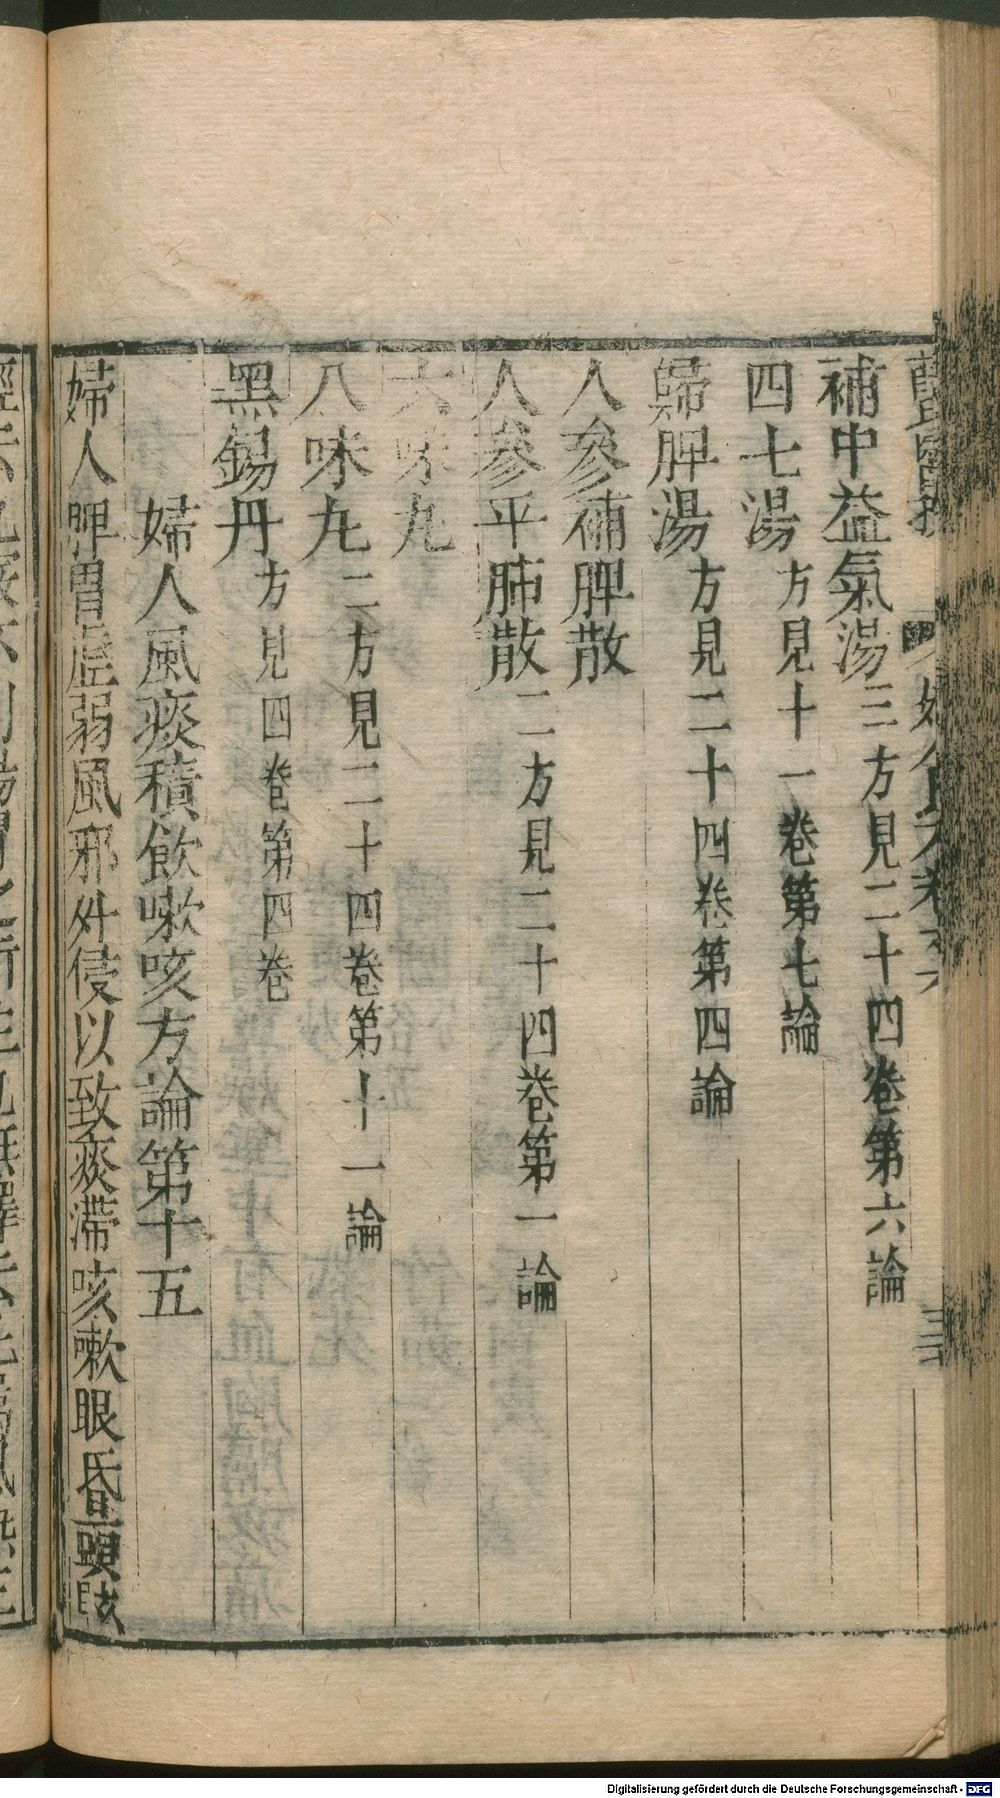 補中益氣湯三方見二十四卷第六論
四七湯方見十一卷第七論
歸脾湯方見二十四卷第四論
人參補脾散
人參平肺散二方見二十四卷第一論
六味丸
八味丸二方見二十四卷第十一論
黑錫丹方見四卷第四卷
婦人風痰積飲嗽咳方論第十五
婦人脾胃虛弱風邪外侵以致痰滯咳嗽眼昏頭眩
Digitalisierung gefördert durch die Deutsche Forschungsgemeinschaft - DFG